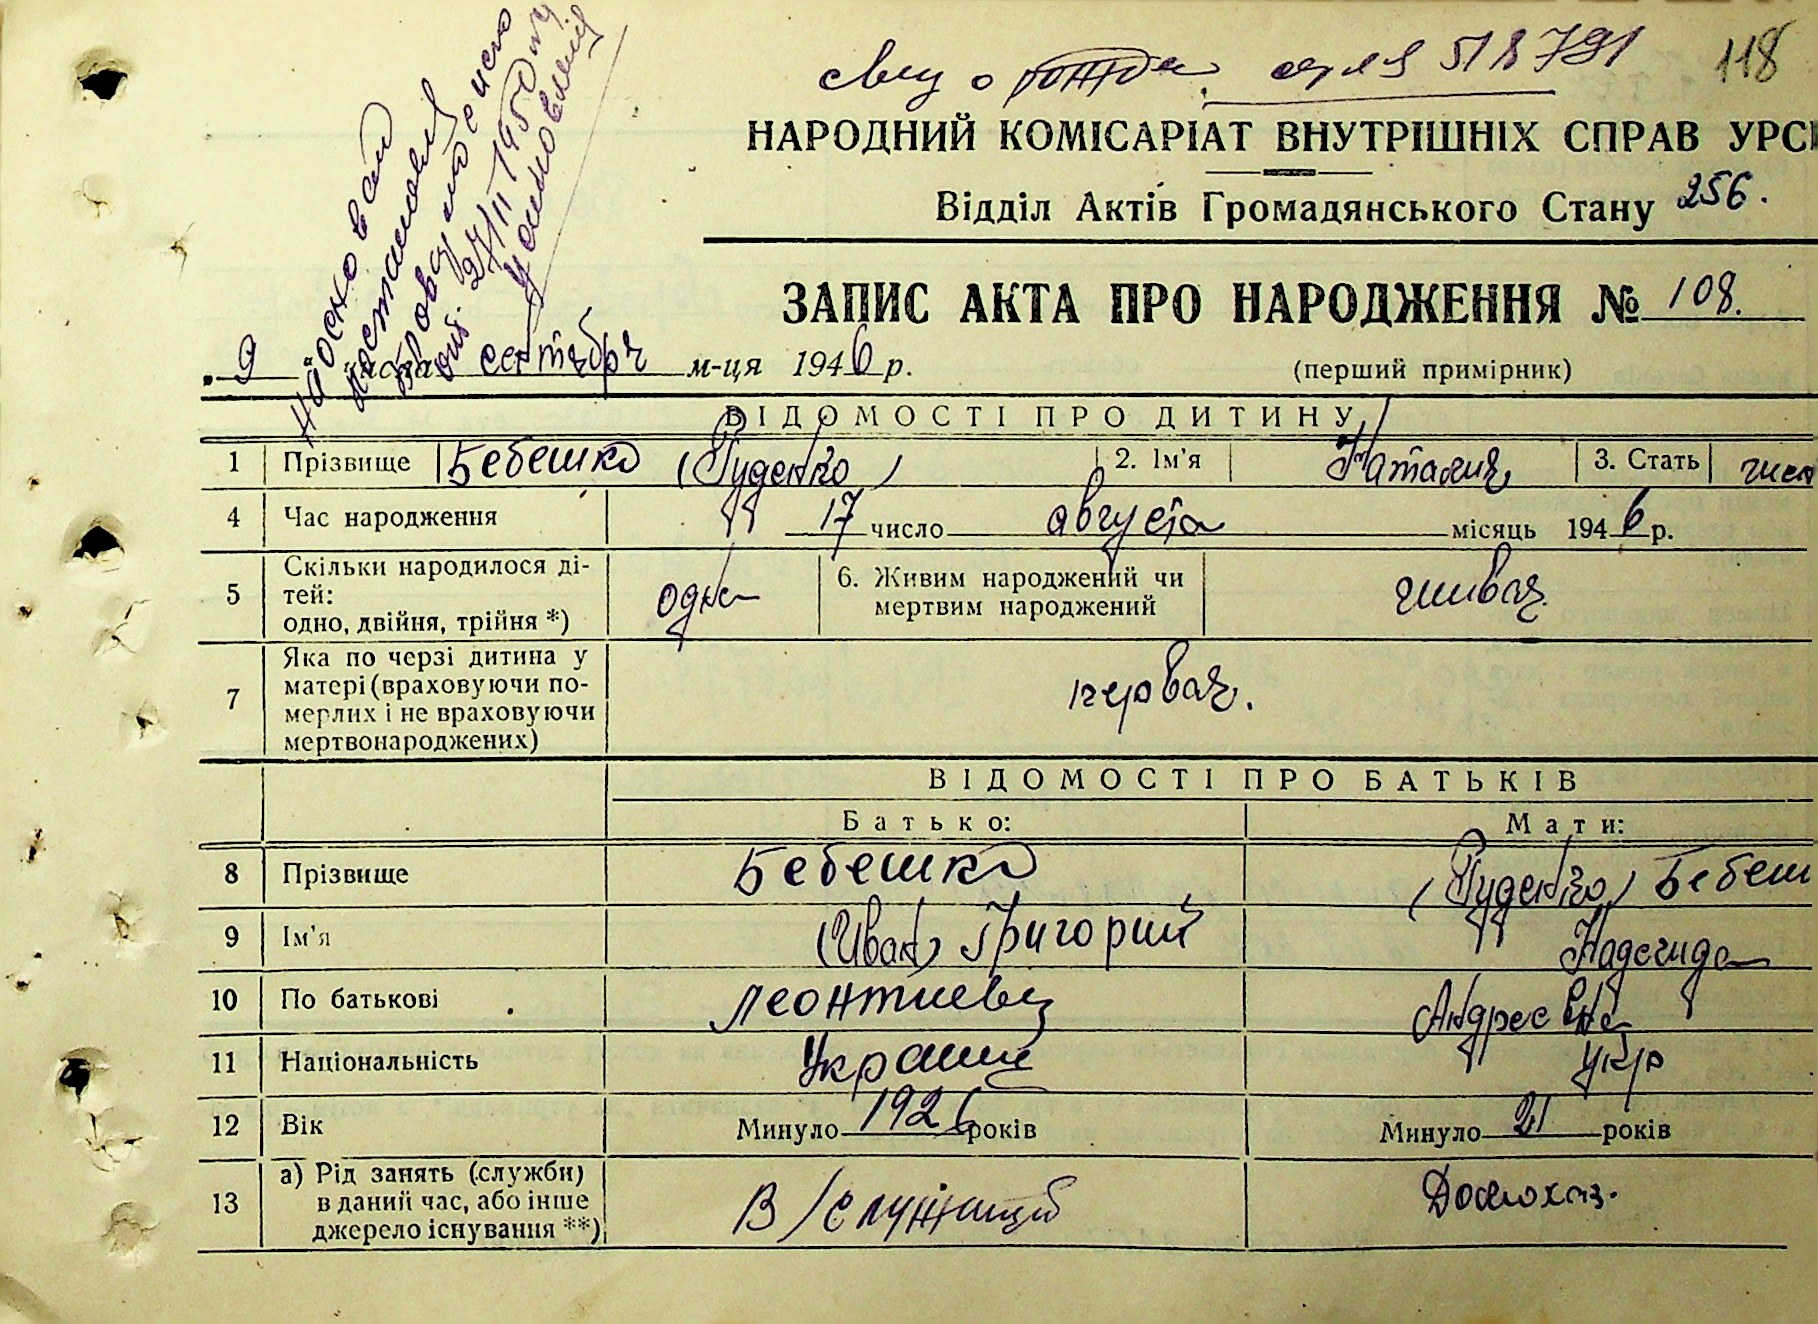 118
НАРОДНИЙ КОМІСАРІАТ ВНУТРІШНІХ СПРАВ УРС
Відділ Актів Громадянського Стану 256.
ЗАПИС АКТА ПРО НАРОДЖЕННЯ № 108.
(перший примірник)
9 сентября м-ця 1946 р.
На основании
27/II 1950
ВІДОМОСТІ ПРО ДИТИНУ
1 Прізвище Бебешко (Руденко) 2. Ім'я Наталия 3. Стать
4 Час народження 17 число августа місяць 1946 р.
5 Скільки народилося ді-
тей:
одно, двійня, трійня *) одна 6. Живим народжений чи
мертвим народжений живая
7 Яка по черзі дитина у
матері (враховуючи по-
мерлих і не враховуючи
мертвонароджених) первая.
ВІДОМОСТІ ПРО БАТЬКІВ
Батько: Мати:
8 Прізвище Бебешко (Руденко) Бебеш
9 Ім'я (Иван) Григорий Надежда
10 По батькові Леонтиевич Андреевна
11 Національність Украинец укр
12 Вік Минуло 1926 років Минуло 21 років
13 а) Рід занять (служби)
в даний час, або інше
джерело існування **) В/служащий Домохоз.